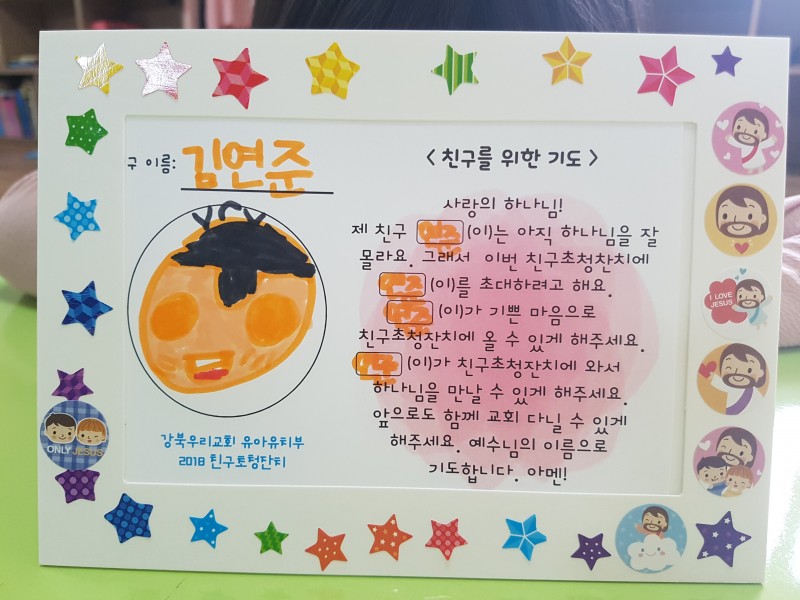 구 이름: 김연준
< 친구를 위한 기도 >
사랑의 하나님!
제 친구 연준 (이)는 아직 하나님을 잘
몰라요. 그래서 이번 친구초청잔치에
(이)를 초대하려고 해요.
(이)가 기쁜 마음으로
친구초청잔치에 올 수 있게 해주세요.
(이)가 친구초청잔치에 와서
하나님을 만날 수 있게 해주세요.
앞으로도 함께 교회 다닐 수 있게
해주세요. 예수님의 이름으로
기도합니다. 아멘!
강북우리교회 유아유치부
2018 친구초청잔치
I LOVE
JESUS
ONLY JESUS